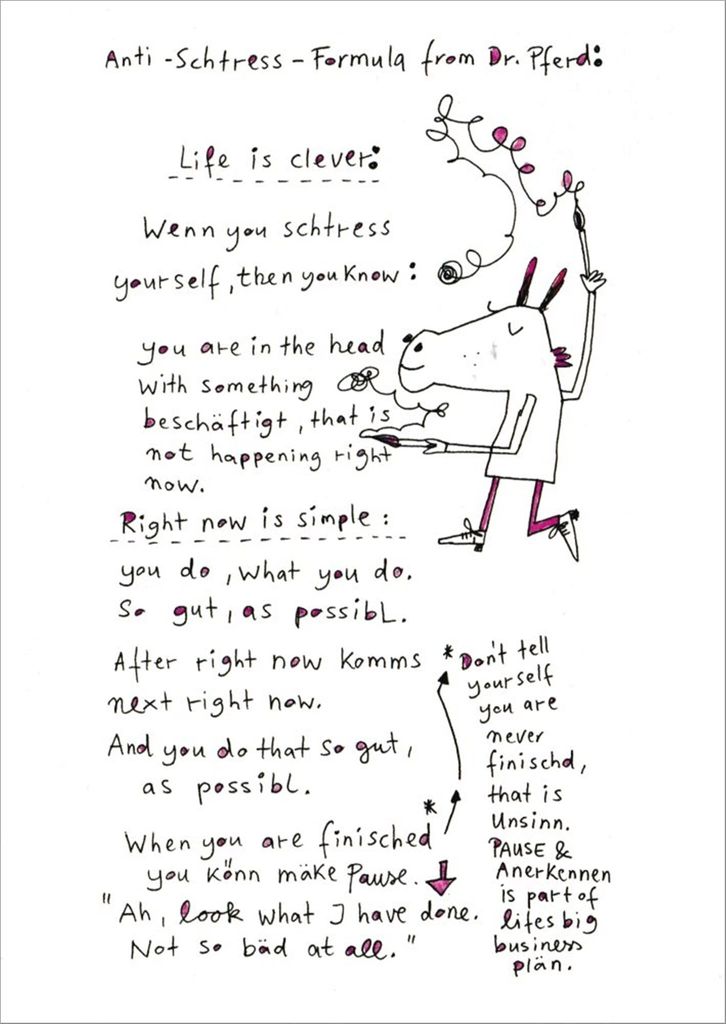 Anti-Schtress-Formula from Dr. Pferd:
Life is clever:
Wenn you schtress
yourself, then you know:
you are in the head
with something
beschäftigt, that is
not happening right
now.
Right now is simple:
you do, what you do.
So gut, as possibl.
After right now komms
next right now.
And you do that so gut,
as possibl.
When you are finisched*
you könn mäke Pause.
"Ah, look what I have done.
Not so bäd at all."
* Don't tell
yourself
you are
never
finischd,
that is
Unsinn.
PAUSE &
Anerkennen
is part of
lifes big
business
plän.